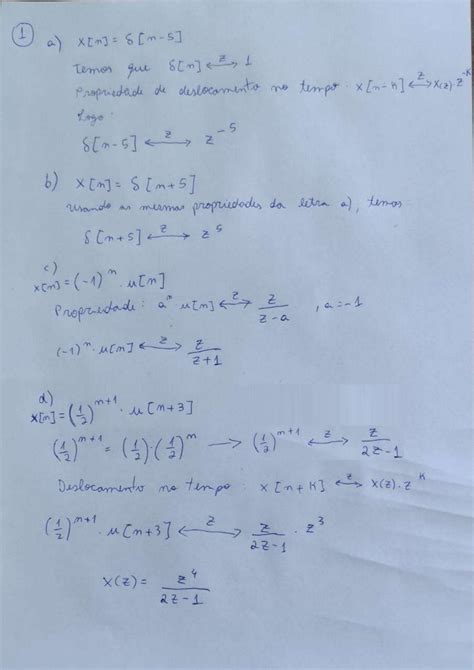 1
a) x[n] = δ[n-5]
Temos que δ[n] ⟷ᶻ 1
Propriedade de deslocamento no tempo: x[n-k] ⟷ᶻ X(z) z^-k
Logo:
δ[n-5] ⟷ᶻ z^-5
b) x[n] = δ[n+5]
Usando as mesmas propriedades da letra a), temos
δ[n+5] ⟷ᶻ z^5
c)
x[n] = (-1)^n · u[n]
Propriedade: a^n u[n] ⟷ᶻ z/(z-a) , a=-1
(-1)^n · u[n] ⟷ᶻ z/(z+1)
d)
x[n] = (1/2)^(n+1) · u[n+3]
(1/2)^(n+1) = (1/2)·(1/2)^n ⟶ (1/2)^(n+1) ⟷ᶻ z/(2z-1)
Deslocamento no tempo: x[n+k] ⟷ᶻ X(z)·z^k
(1/2)^(n+1) · u[n+3] ⟷ᶻ z/(2z-1) · z^3
X(z) = z^4/(2z-1)